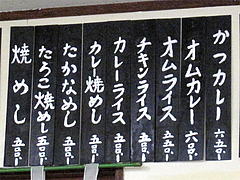 かつカレー 六五〇
オムカレー 六〇〇
オムライス 五五〇
チキンライス
カレーライス
カレー焼めし
たかなめし 五五〇
たらこ焼めし 五五〇
焼めし